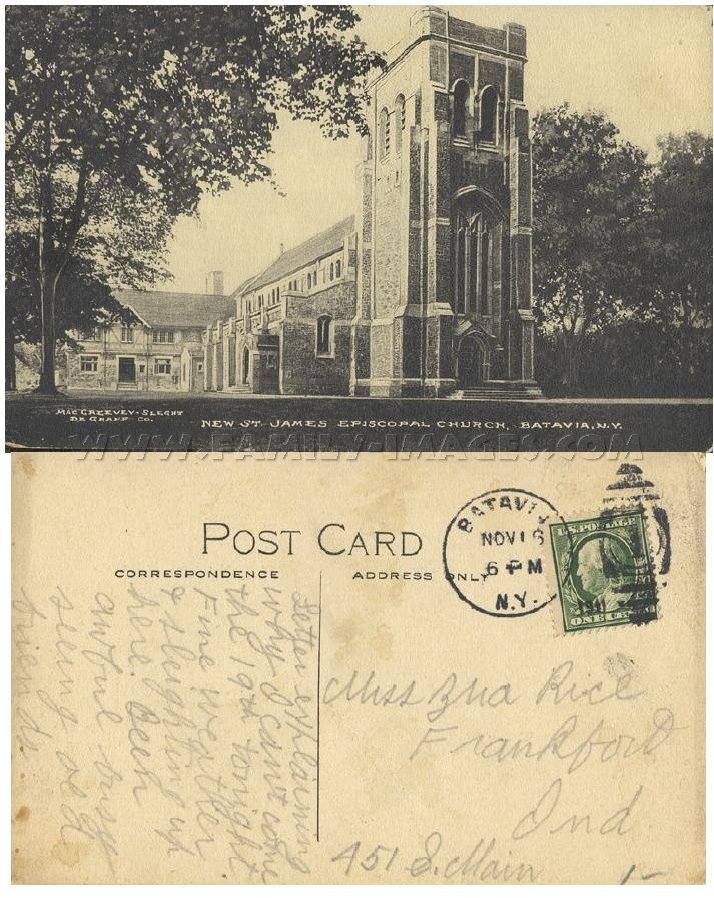 MacGreevey-Sleght
De Graff Co.
New St. James Episcopal Church, Batavia, N.Y.
WWW.FAMILY-IMAGES.COM
POST CARD
CORRESPONDENCE
ADDRESS ONLY
BATAVIA
NOV 16
6 PM
N.Y.
U.S. POSTAGE
ONE CENT
Letter explaining
why I cannot come
the 19th tonight.
Fine weather
& sleighing up
here. Been
awful busy
seeing old
friends.
Miss Rice
Frankfort
Ind.
451 S. Main